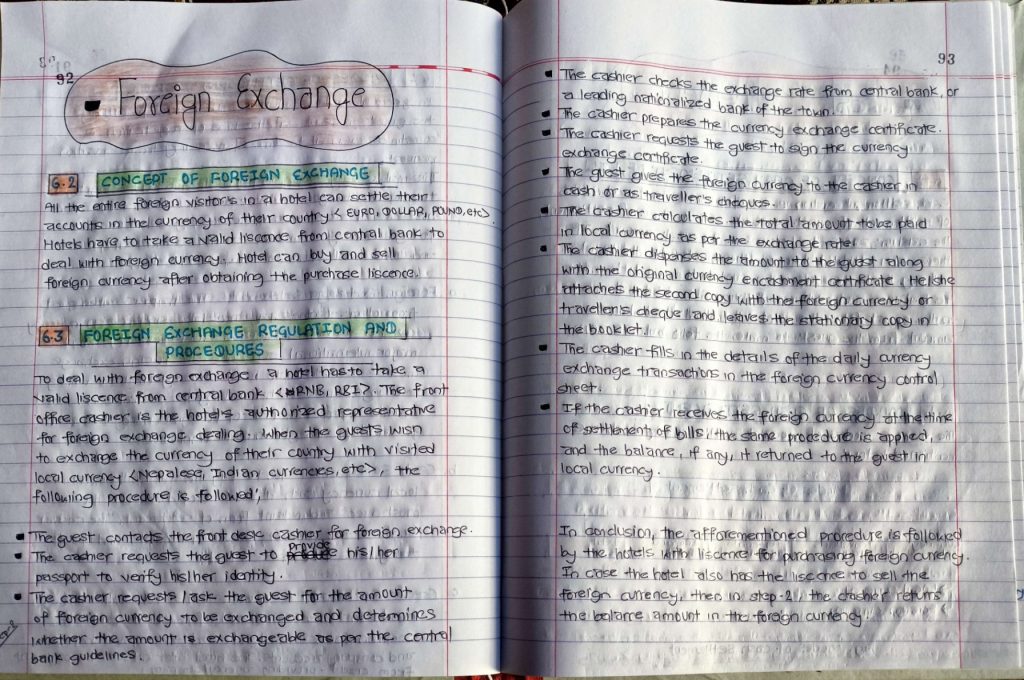 92
Foreign Exchange
6.2 CONCEPT OF FOREIGN EXCHANGE
All the entire foreign visitor's in a hotel can settle their
accounts in the currency of their country < EURO, DOLLAR, POUND, etc>
Hotels have to take a valid liscence from central bank to
deal with foreign currency. Hotel can buy and sell
foreign currency after obtaining the purchase liscence.
6.3 FOREIGN EXCHANGE REGULATION AND
PROCEDURES
To deal with foreign exchange, a hotel has to take a
valid liscence from central bank < NRB, RBI>. The front
office cashier is the hotel's authorized representative
for foreign exchange dealing. When the guests wish
to exchange the currency of their country with visited
local currency <Nepalese, Indian currencies, etc>, the
following procedure is followed;
The guest contacts the front desk cashier for foreign exchange.
The cashier requests the guest to provide his/her
passport to verify his/her identity.
The cashier requests/ask the guest for the amount
of foreign currency to be exchanged and determines
whether the amount is exchangeable as per the central
bank guidelines.
93
The cashier checks the exchange rate from central bank, or
a leading nationalized bank of the town.
The cashier prepares the currency exchange certificate.
The cashier requests the guest to sign the currency
exchange certificate.
The guest gives the foreign currency to the cashier in
cash or as traveller's cheques.
The cashier calculates the total amount to be paid
in local currency as per the exchange rate.
The cashier dispenses the amount to the guest along
with the original currency encashment certificate. He/she
attaches the second copy with the foreign currency or
traveller's cheque and leaves the stationary copy in
the booklet.
The cashier fills in the details of the daily currency
exchange transactions in the foreign currency control
sheet.
If the cashier receives the foreign currency at the time
of settlement of bills, the same procedure is applied,
and the balance, if any, it returned to the guest in
local currency.
In conclusion, the afforementioned procedure is followed
by the hotels with liscence for purchasing foreign currency.
In case the hotel also has the liscence to sell the
foreign currency, then in step-2, the cashier returns
the balance amount in the foreign currency.